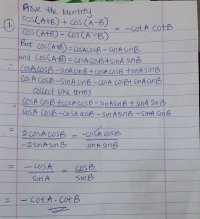 Prove the Identity
① cos(A+B) + cos(A-B) / cos(A+B) - cos(A-B) = -cotA cotB
But cos(A+B) = cosAcosB - sinAsinB
and cos(A-B) = cosAcosB + sinA sinB
∴ cosAcosB - sinAsinB + cosAcosB + sinAsinB
cosA cosB - sinA sinB - cosA cosB + sinA sinB
collect like terms
= cosA cosB + cosA cosB - sinA sinB + sinA sinB
cosA cosB - cosA cosB - sinA sinB - sinA sinB
= 2 cosA cosB = -cosA cosB
-2 sinA sinB sinA sinB
= -cosA · cosB
sinA sinB
= -cotA · cotB